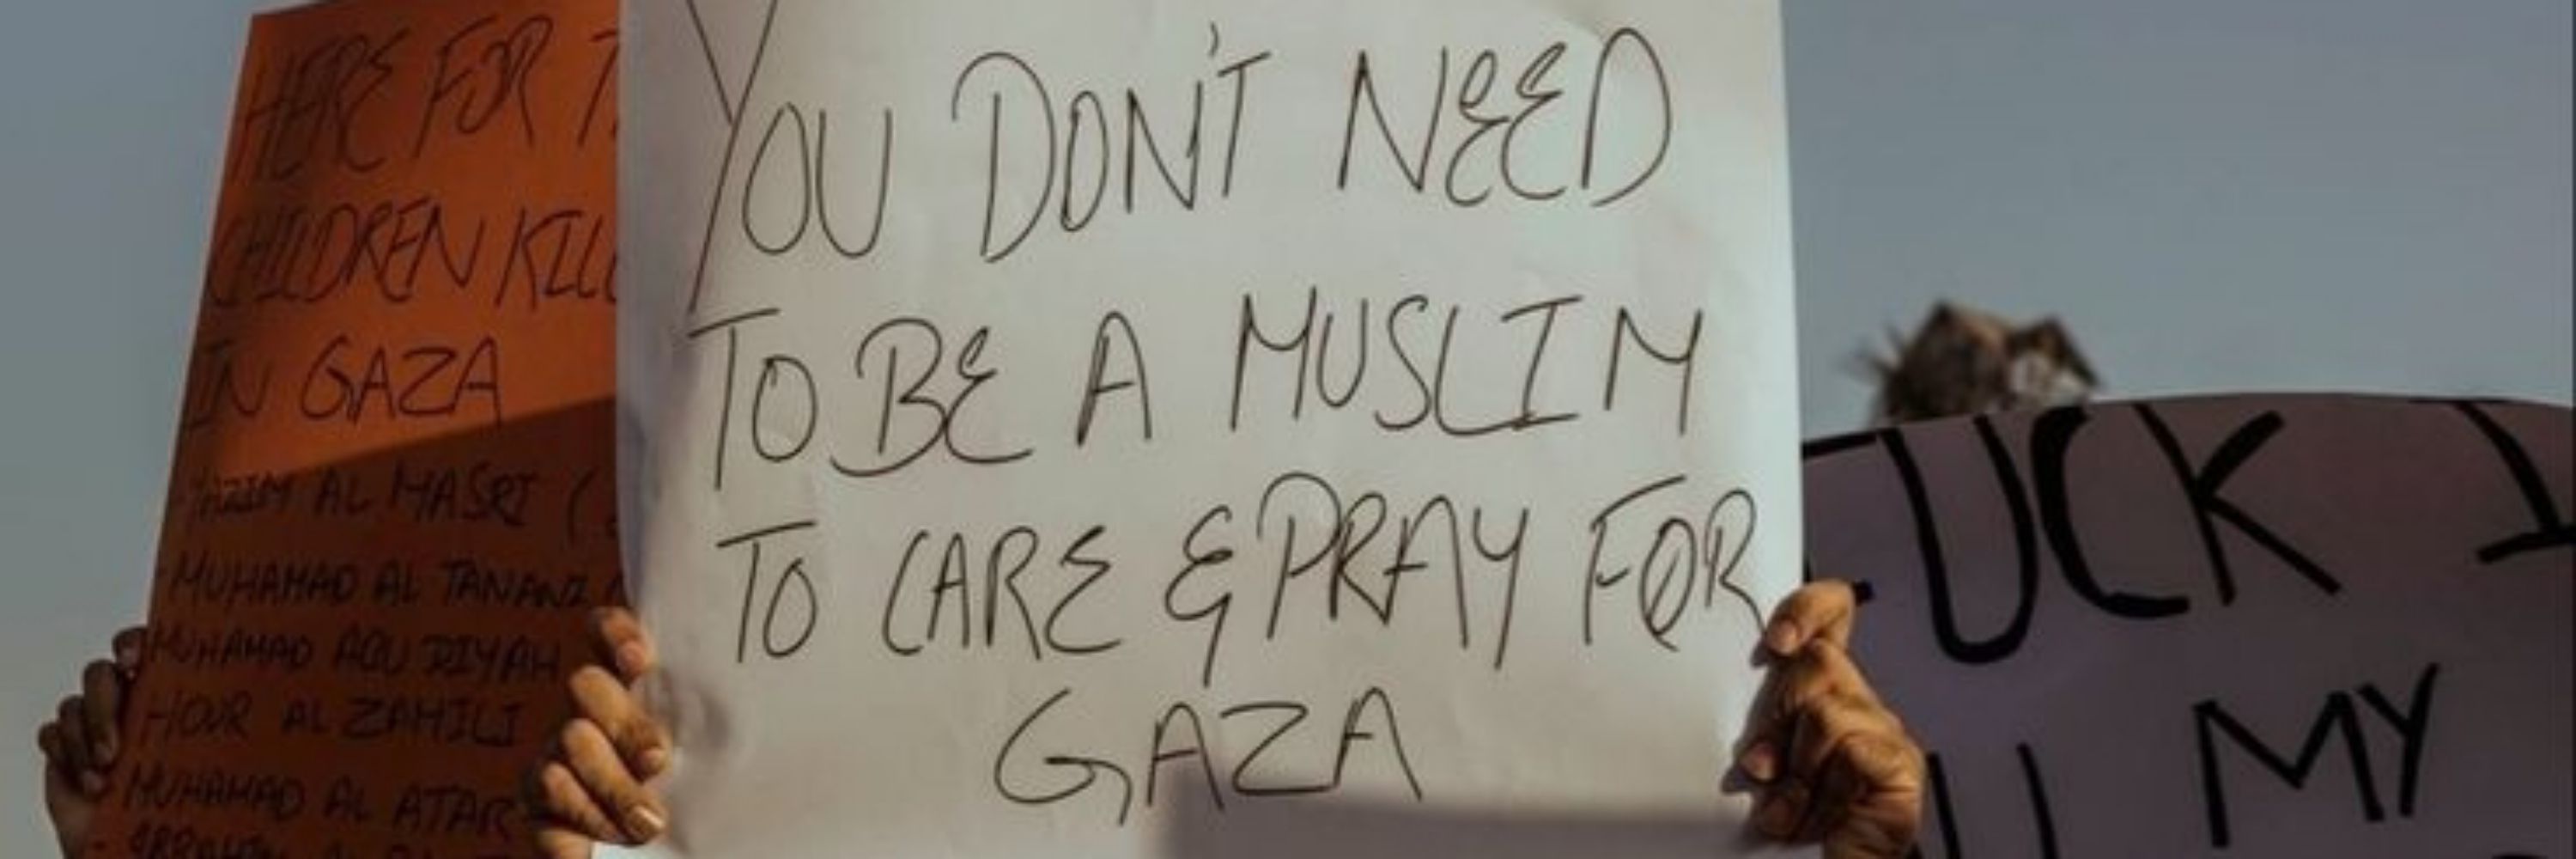 HERE FOR
CHILDREN
IN GAZA
AL MASRI (
MUHAMAD AL TANANI
MUHAMAD ABU DIYAH
HOUR AL ZAMILI
MUHAMAD AL ATAR
YOU DON'T NEED
TO BE A MUSLIM
TO CARE & PRAY FOR
GAZA
FUCK
MY